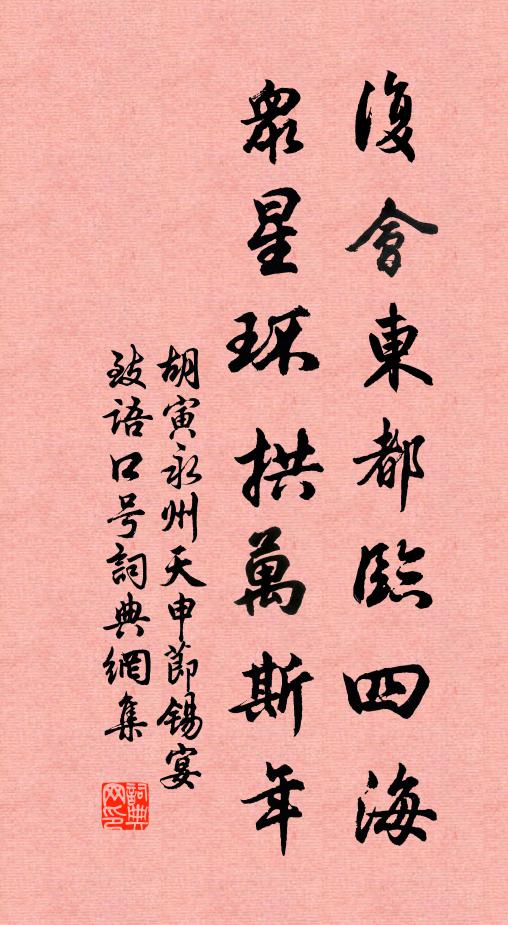 復會東都臨四海
眾星环拱萬斯年
胡寅永州天申節錫宴
致語口号詞典網集
詞典网印